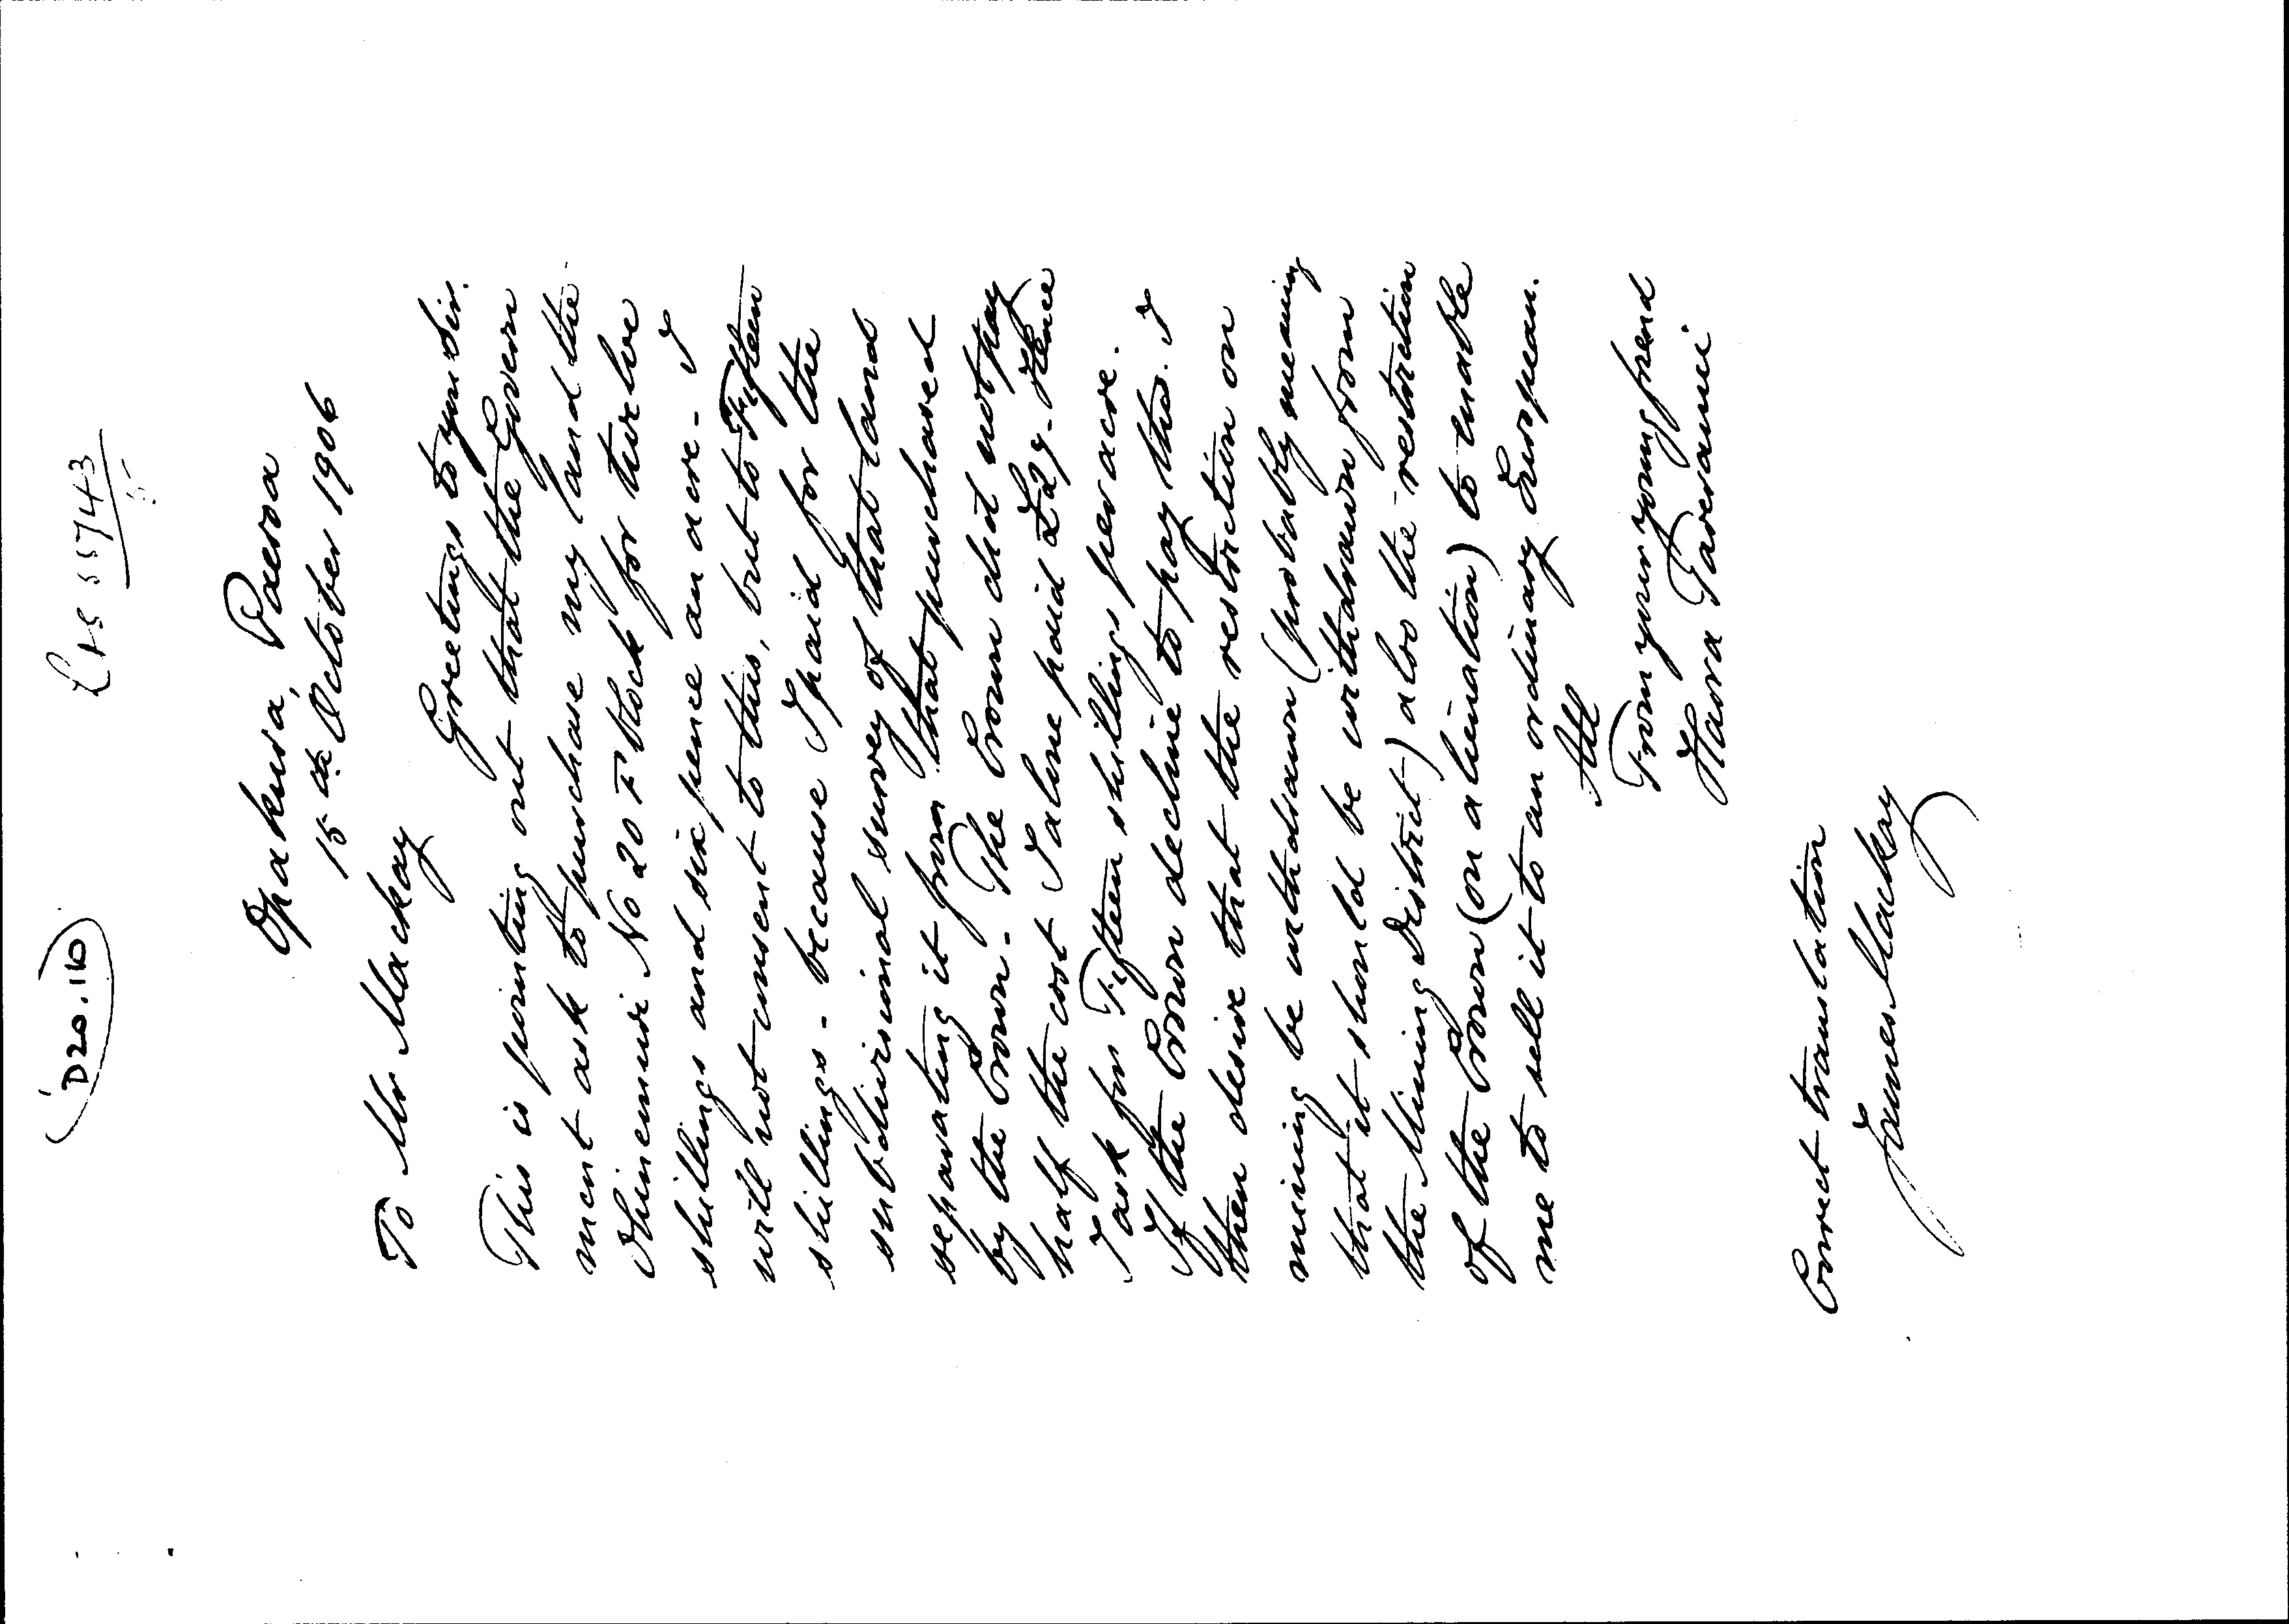 D20.110
L+S 55743
Opakura, Paeroa
15th October 1906
To Mr Mackay
Greetings to you Sir.
This is pointing out that the Govern
ment ask to purchase my land the
Ohinemuri No 20 F Block for twelve
shillings and six pence an acre - I
will not consent to this, but to Fifteen
shillings - because I paid for the
subdivisional survey of that land
separating it from that purchased
by the Crown. The Crown did not pay
half the cost I alone paid £29. Hence
I ask for Fifteen shillings per acre.
If the Crown decline to pay this. I
then desire that the restriction on
mining be withdrawn (probably meaning
that it should be withdrawn from
the Mining District) also the restriction
of the Crown (on alienation) to enable
me to sell it to an ordinary European.
All
From your young friend
Hara Taverami
Correct translation
James Mackay